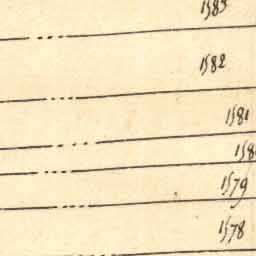 1583
1582
1581
1579
1578